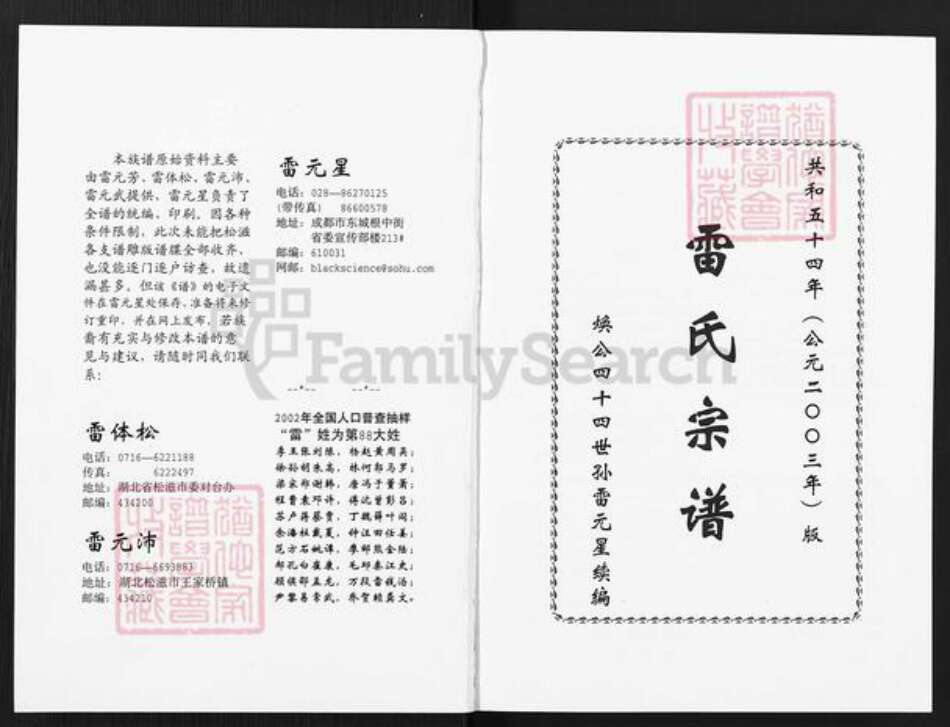 本族谱原始资料主要
由雷元芳、雷体松、雷元沛、
雷元武提供，雷元星负责了
全谱的统编、印刷。因各种
条件限制，此次未能把松滋
各支谱雕版谱牒全部收齐，
也没能逐门逐户访查，故遗
漏甚多。但该《谱》的电子文
件在雷元星处保存，准备将来修
订重印，并在网上发布，若族
裔有充实与修改本谱的意
见与建议，请随时同我们联
系：
雷体松
电话：0716—6221188
传真：6222497
地址：湖北省松滋市委对台办
邮编：434200
雷元沛
电话：0716—6693883
地址：湖北松滋市王家桥镇
邮编：434210
雷元星
电话：028—86270125
(带传真) 86600578
地址：成都市东城根中街
省委宣传部楼213#
邮编：610031
网邮：blackscience@sohu.com
2002年全国人口普查抽样
“雷”姓为第88大姓
李王张刘陈，杨赵黄周吴；
徐孙胡朱高，林何郭马罗；
梁宋郑谢韩，唐冯于董萧；
程曹袁邓许，傅沈曾彭吕；
苏卢蒋蔡贾，丁魏薛叶阎；
余潘杜戴夏，钟汪田任姜；
范方石姚谭，廖邹熊金陆；
郝孔白崔康，毛邱秦江史；
顾侯邵孟龙，万段雷钱汤；
尹黎易常武，乔贺赖龚文。
共和五十四年（公元二〇〇三年）版
雷氏宗谱
焕公四十四世孙雷元星续编
FamilySearch